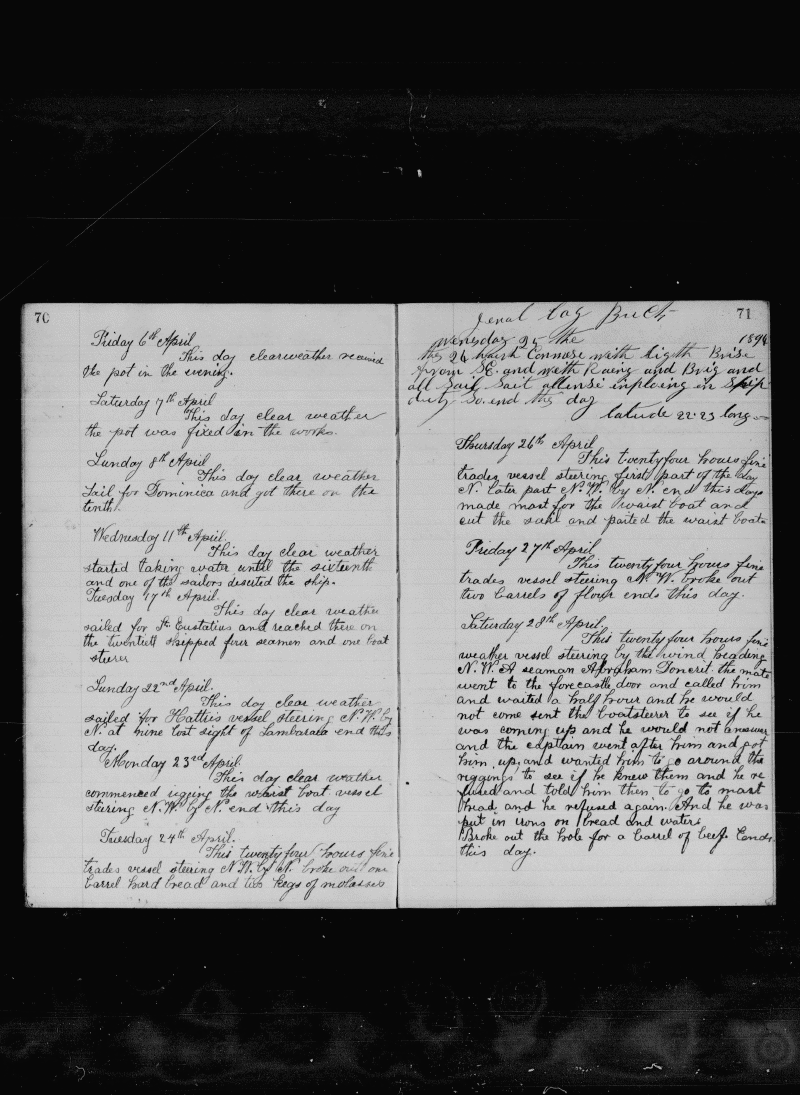 70
Friday 6th April
This day clear weather received
the pot in the evening.
Saturday 7th April
This day clear weather
the pot was fixed in the works.
Sunday 8th April
This day clear weather
Sail for Dominica and got there on the
tenth.
Wednesday 11th April
This day clear weather
started taking water until the sixteenth
and one of the sailors deserted the ship.
Tuesday 17th April.
This day clear weather
sailed for St. Eustatius and reached there on
the twentieth shipped four seamen and one boat
steerer
Sunday 22nd April.
This day clear weather
sailed for Hattris vessel steering N.W. by
N. at nine lost sight of end this
day.
Monday 23rd April.
This day clear weather
commenced rigging the waist boat vessel
steering N.W. by N. end this day
Tuesday 24th April.
This twentyfour hours fine
trades vessel steering N.W. by N. broke out one
barrel hard bread and two kegs of molasses
71
log
25 the 1894
the 26 with Brise
S.E. and with and Brig and
all Sail in Ship
duty So end this day
latude 22.23 long
Thursday 26th April
This twentyfour hours fine
trades vessel steering first part of the day
N. later part N.W. by N. end this day
made mast for the waist boat and
cut the sail and painted the waist boat
Friday 27th April
This twentyfour hours fine
trades vessel steering N.W. broke out
two barrels of flour ends this day.
Saturday 28th April,
This twentyfour hours fine
weather vessel steering by the wind heading
N.W. A seaman Abraham the mate
went to the forecastle door and called him
and waited a half hour and he would
not come sent the boatsteerer to see if he
was coming up and he would not answer
and the captain went after him and got
him up, and wanted him to go around the
riggings to see if he knew them and he re
fused and told him then to go to mast
head, and he refused again. And he was
put in irons on bread and water.
Broke out the hole for a barrel of beef. Ends
this day.